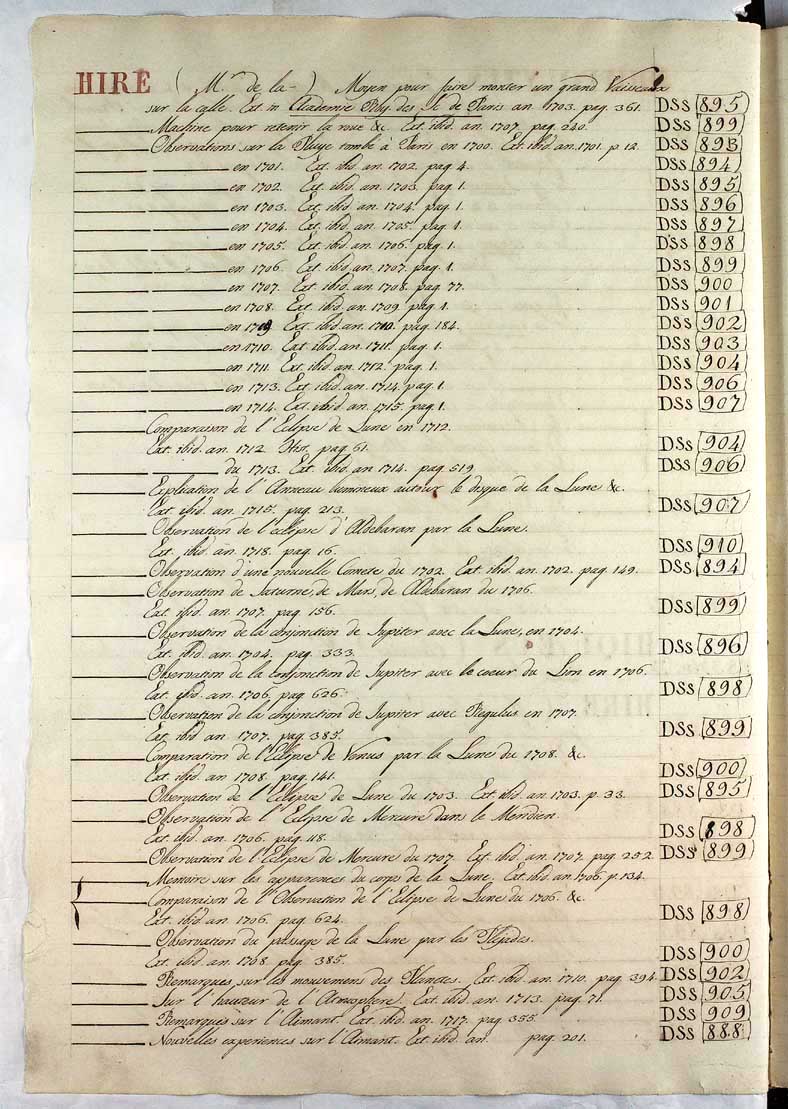 HIRE ( Mr de la ) Moyen pour faire monter un grand Vaisseau
sur la calle. Ext. in Academie Roy. des Sc. de Paris an. 1703. pag. 361. DSS 895
Machine pour retenir la roue &c. Ext. ibid. an. 1707. pag. 240. DSS 899
Observations sur la Pluye tombé à Paris en 1700. Ext. ibid. an. 1701. p. 12. DSS 893
en 1701. Ext. ibid. an. 1702. pag. 4. DSS 894
en 1702. Ext. ibid. an. 1703. pag. 1. DSS 895
en 1703. Ext. ibid. an. 1704. pag. 1. DSS 896
en 1704. Ext. ibid. an. 1705. pag. 1. DSS 897
en 1705. Ext. ibid. an. 1706. pag. 1. DSS 898
en 1706. Ext. ibid. an. 1707. pag. 1. DSS 899
en 1707. Ext. ibid. an. 1708. pag. 77. DSS 900
en 1708. Ext. ibid. an. 1709. pag. 1. DSS 901
en 1709 Ext. ibid. an. 1710. pag. 184. DSS 902
en 1710. Ext. ibid. an. 1711. pag. 1. DSS 903
en 1711. Ext. ibid. an. 1712. pag. 1. DSS 904
en 1713. Ext. ibid. an. 1714. pag. 1. DSS 906
en 1714. Ext. ibid. an. 1715. pag. 1. DSS 907
Comparaison de l'Eclipse de Lune en 1712.
Ext. ibid. an. 1712. Hist. pag. 61. DSS 904
du 1713. Ext. ibid. an. 1714. pag. 519. DSS 906
Expliation de l'Anneau lumineux autour le disque de la Lune &c.
Ext. ibid. an. 1715. pag. 213. DSS 907
Observation de l'eclipse d'Aldebaran par la Lune.
Ext. ibid. an. 1718. pag. 16. DSS 910
Observation d'une nouvelle Comete du 1702. Ext. ibid. an. 1702. pag. 149. DSS 894
Observation de Saturne, de Mars, de Aldebaran du 1706.
Ext. ibid. an. 1707. pag. 156. DSS 899
Observation de la conjonction de Jupiter avec la Lune, en 1704.
Ext. ibid. an. 1704. pag. 333. DSS 896
Observation de la conjonction de Jupiter avec le coeur du Lion en 1706.
Ext. ibid. an. 1706. pag. 626. DSS 898
Observation de la conjonction de Jupiter avec Regulus en 1707.
Ext. ibid. an. 1707. pag. 385. DSS 899
Comparation de l'Eclipse de Venus par la Lune du 1708. &c.
Ext. ibid. an. 1708. pag. 141. DSS 900
Observation de l'Eclipse de Lune du 1703. Ext. ibid. an. 1703. p. 33. DSS 895
Observation de l'Eclipse de Mercure dans le Meridien.
Ext. ibid. an. 1706. pag. 118. DSS 898
Observation de l'Eclipse de Mercure du 1707. Ext. ibid. an. 1707. pag. 252. DSS 899
Memoire sur les apparences du corps de la Lune. Ext. ibid. an. 1706. p. 134.
Comparaison de l'Observation de l'Eclipse de Lune du 1706. &c.
Ext. ibid. an. 1706. pag. 624. DSS 898
Observation du passage de la Lune par les Plejades.
Ext. ibid. an. 1708. pag. 385. DSS 900
Remarques sur les mouvemens des Planetes. Ext. ibid. an. 1710. pag. 394. DSS 902
Sur l'hauteur de l'Atmosphere. Ext. ibid. an. 1713. pag. 71. DSS 905
Remarques sur l'Aimant. Ext. ibid. an. 1717. pag. 355 DSS 909
Nouvelles experiences sur l'Aimant. Ext. ibid. an. pag. 201. DSS 888